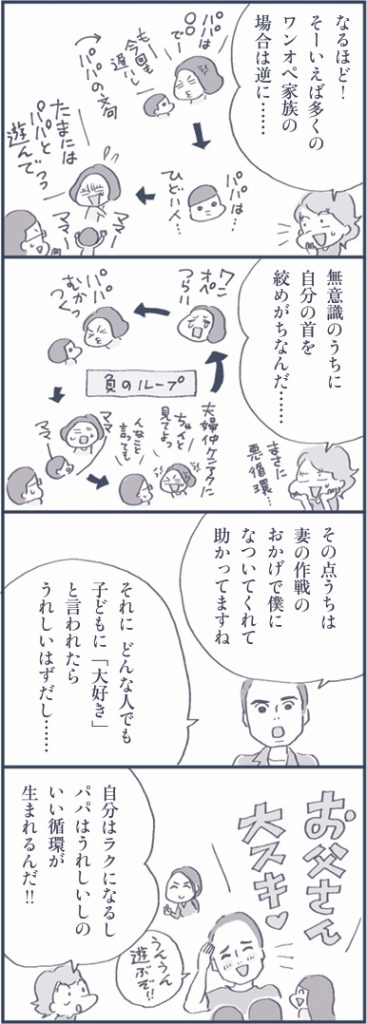 なるほど！
そーいえば多くの
ワンオペ家族の
場合は逆に……
パパは
〇〇でー
もー
今回も
遅いし
パパの文句
パパは…
ひどい人…
たまには
パパと
遊んでっっ
ママー
ママー
無意識のうちに
自分の首を
絞めがちなんだ……
まさに
悪循環…
ワン
オペ
つらい
パパ
むか
つくっ
負のループ
ママ
ママー
夫婦仲ケンアクに
ちゃんと
見てよっ
んなこと
言っても
その点うちは
妻の作戦の
おかげで僕に
なついてくれて
助かってますね
それに どんな人でも
子どもに「大好き」
と言われたら
うれしいはずだし……
お父さん
大スキ♥
自分はラクになるし
パパはうれしいしの
いい循環が
生まれるんだ!!
うんうん
遊ぶぞ!!